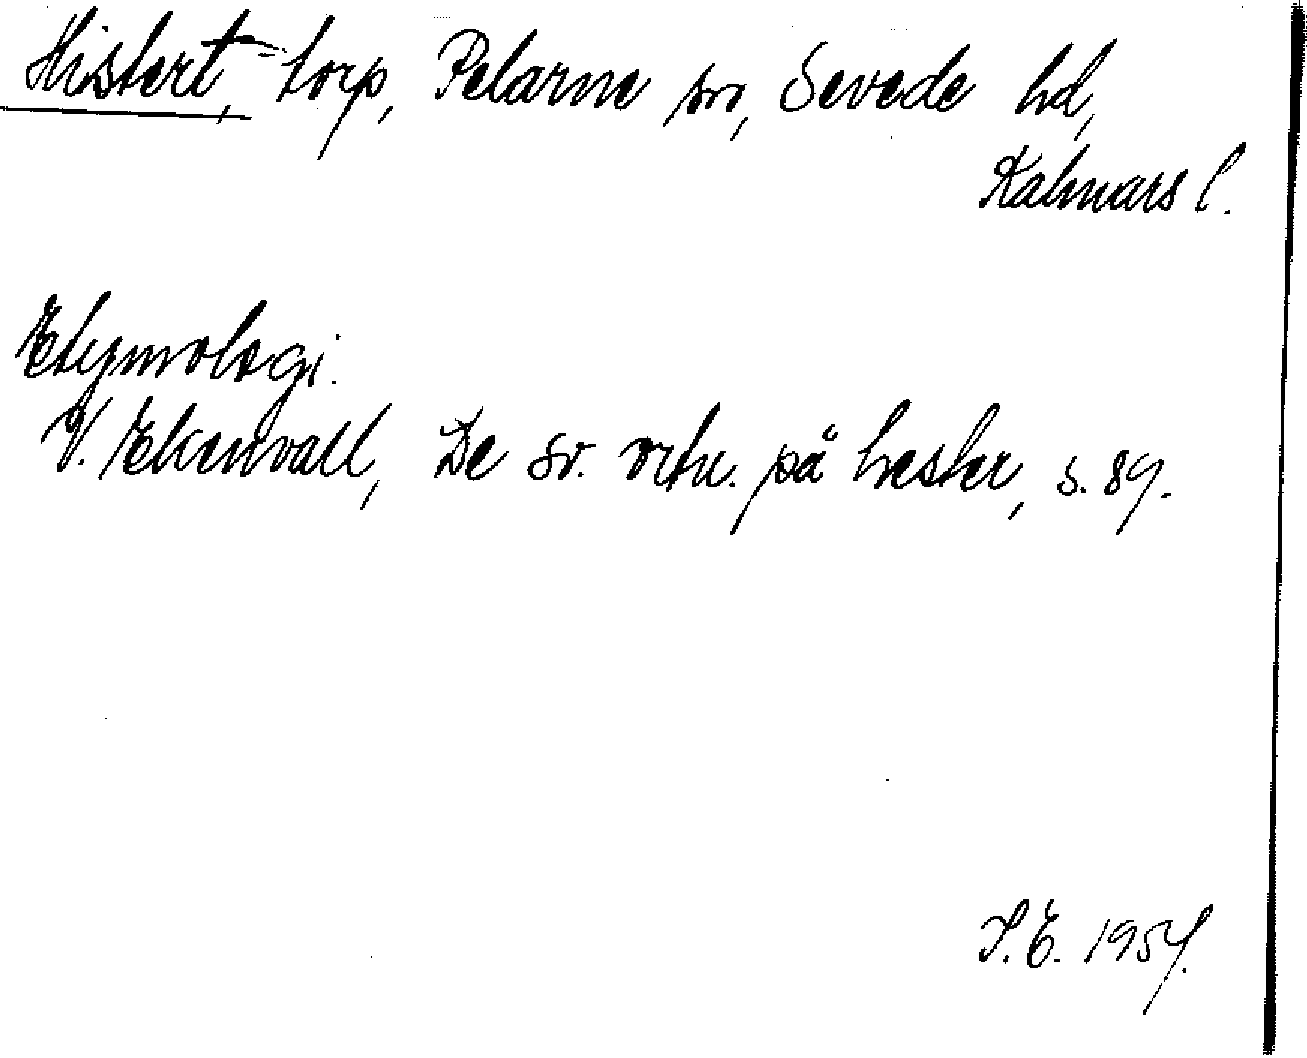 Histert, torp, Pelarne sn, Sevede hd,
Kalmars l.
Etymologi.
V. Ekenvall, De sv. ortn. på hester, s. 89.
S.E. 1957.